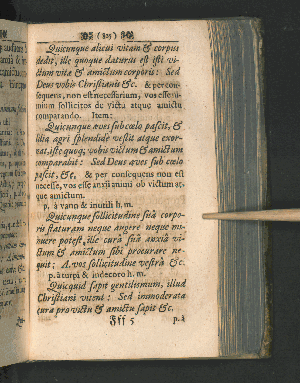 (825)
Quicunque alicui vitam & corpus
dedit, ille quoque daturus est isti vi-
ctum vitæ & amictum corporis: Sed
Deus vobis Christianis &c. & per con-
sequens, non est necessarium, vos esse
nimium sollicitos de victu atque amictu
comparando. Item:
Quicunque aves sub cœlo pascit, &
lilia agri splendide vestit atque exor-
nat, iste quoq; vobis victum & amictum
comparabit: Sed Deus aves sub cœlo
pascit, &c. & per consequens non est
necesse, vos esse anxii animi ob victum at-
que amictum.
p. à vano & inutili h. m.
Quicunque sollicitudine suâ corpo-
ris staturam neque augere neque mi-
nuere potest, ille curâ suâ anxiâ vi-
ctum & amictum sibi procurare ne-
quit; A. vos sollicitudine vestrâ &c.
p. à turpi & indecoro h. m.
Quicquid sapit gentilismum, illud
Christiani vitent: Sed immoderata
cura pro victu & amictu sapit &c.
Fff 5 p. à